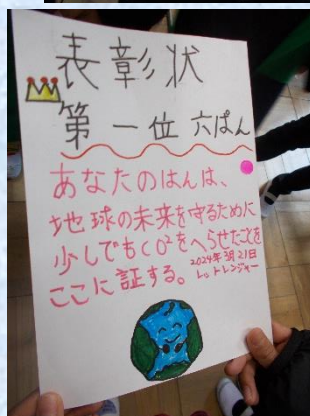 表彰状
第一位 六ぱん
あなたのはんは、
地球の未来を守るために
少しでもCO²をへらせたことを
ここに証する。
2024年3月21日
レトレンジャー